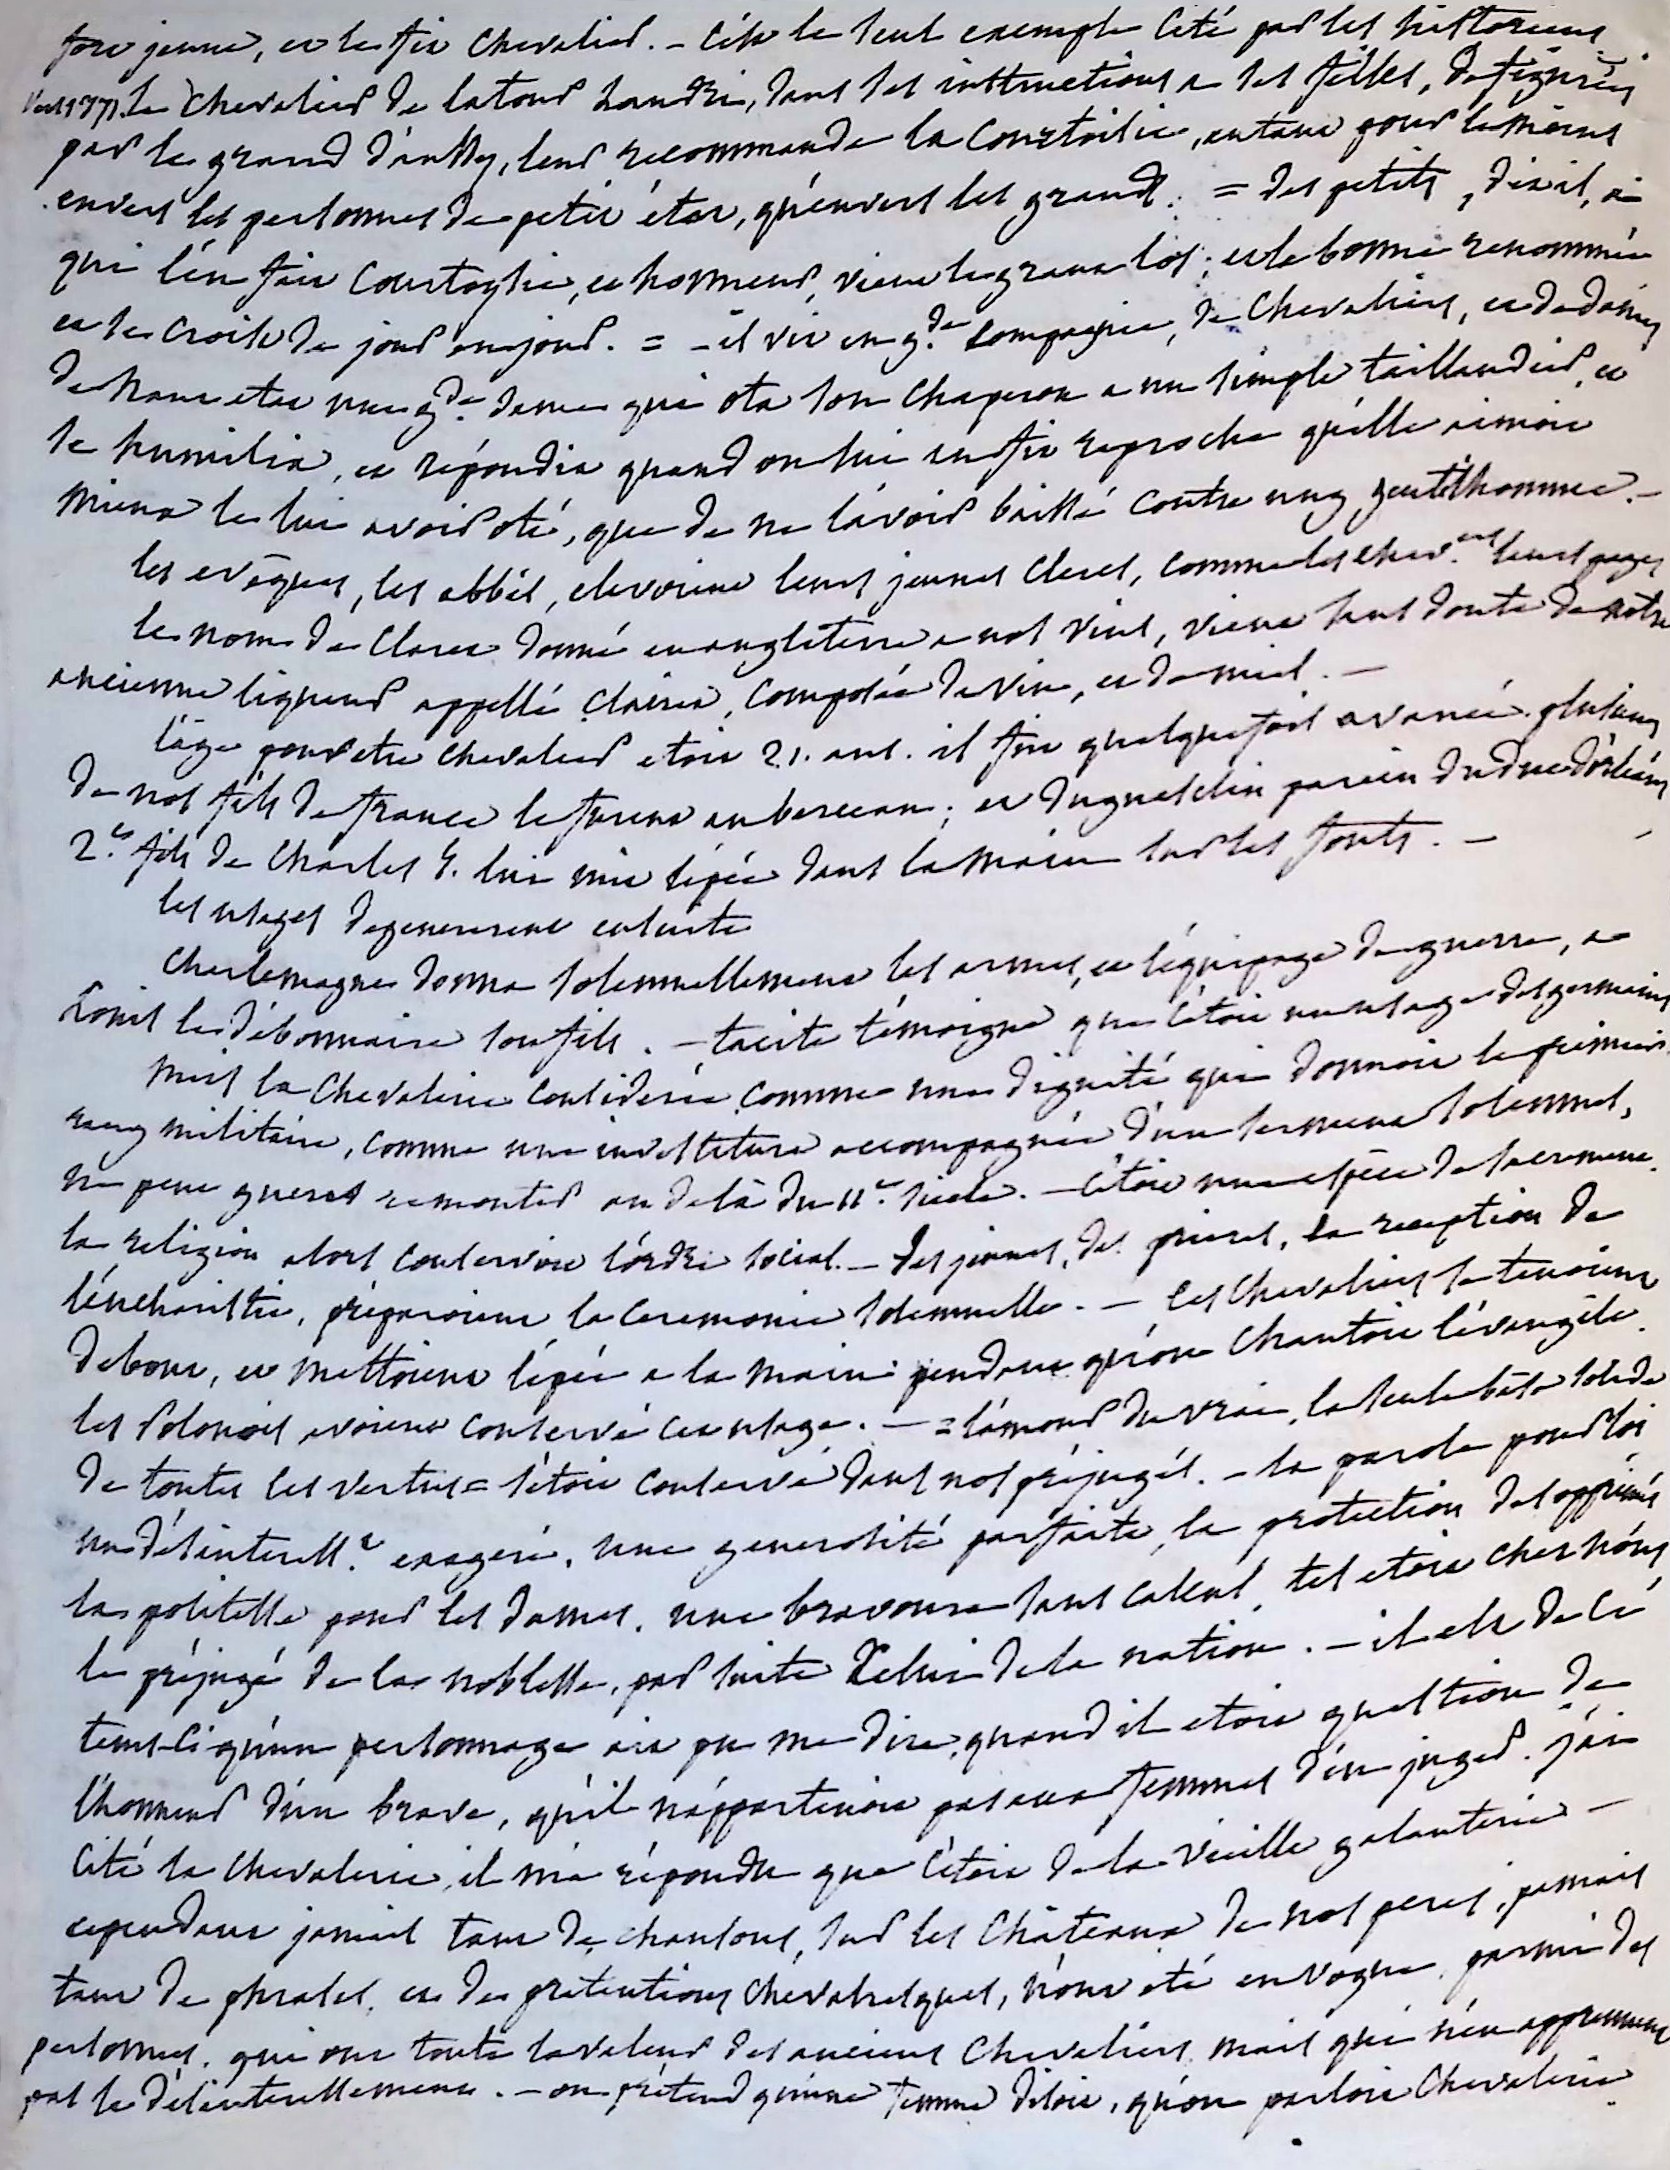 fort jeune, et le fit chevalier. – c'est le seul exemple cité par les historiens
vers 1371. le chevalier de latour Landri, dans ses instructions a ses filles,
par le grand d'aussy, leur recommande la courtoisie, autant pour le moins
envers les personnes de petit état, qu'envers les grands. = des petits, dit il, a
qui l'en fait courtoysie, et honneur, vient le grant los, et la bonne renommée
et se croist de jour en jour. = – il vit en g.de compagnie, de chevaliers, et de dames
de haut etat une g.de dame qui ota son chaperon a un simple taillandier, et
se humilia, et répondit quand on lui en fit reproche qu'elle aimoit
mieux le lui avoir oté, que de ne l'avoir baissé contre ung gentilhomme. –
les evêques, les abbés, elevoient leurs jeunes clercs, comme les chev.ers leurs pages
le nom de claret donné en angleterre a nos vins, vient sans doute de notre
ancienne liqueur appellé clairet, composée de vin, et de miel. –
l'âge pour etre chevalier etoit 21. ans. il fut quelquefois avancé. plusieurs
de nos fils de france le furent au berceau; et duguesclin parain du duc d'orléans
2.e fils de Charles 5. lui mit l'épée dans la main sur les fonts. –
les usages degenererent ensuite
Charlemagne donna solemnellement les armes, et l'équipage de guerre, a
Louis le débonnaire son fils. – tacite témoigne que c'étoit un usage des germains
mais la chevalerie considerée comme une dignité qui donnoit le premier
rang militaire, comme une investiture accompagnée d'un serment solemnel,
ne peut gueres remonter au delà du 11.e siecle. – c'étoit une espèce de sacrement.
la religion alors conservoit l'ordre social. – des jeunes, des prieres, la reception de
l'eucharistie, préparoient la ceremonie solemnelle. – les chevaliers se tenoient
debout, et mettoient l'épée a la main pendant qu'on chantoit l'évangile.
les Polonois avoient conservé cet usage. – = l'amour du vrai, la seule base solide
de toutes les vertus = s'étoit conservé dans nos préjugés. – la parole pour loi
un désinteress.t exageré, une generosité parfaite, la protection des opprimés
la politesse pour les dames, une bravoure sans calcul, tel etoit chez nous
le préjugé de la noblesse, par suite celui de la nation. – il est de ce
tems-ci qu'un personnage ait pu me dire, quand il etoit question de
l'honneur d'un brave, qu'il n'appartenoit pas aux femmes d'en juger. j'ai
cité la chevalerie, il m'a répondu que c'étoit de la vieille galanterie –
cependant jamais tant de chansons, sur les châteaux de nos peres, jamais
tant de phrases, et de pretentions chevaleresques, n'ont été en vogue, parmi des
personnes, qui ont toute la valeur des anciens chevaliers mais qui n'en apprennent
pas le désinteressement. – on prétend qu'une femme disoit, qu'on parloit chevalerie